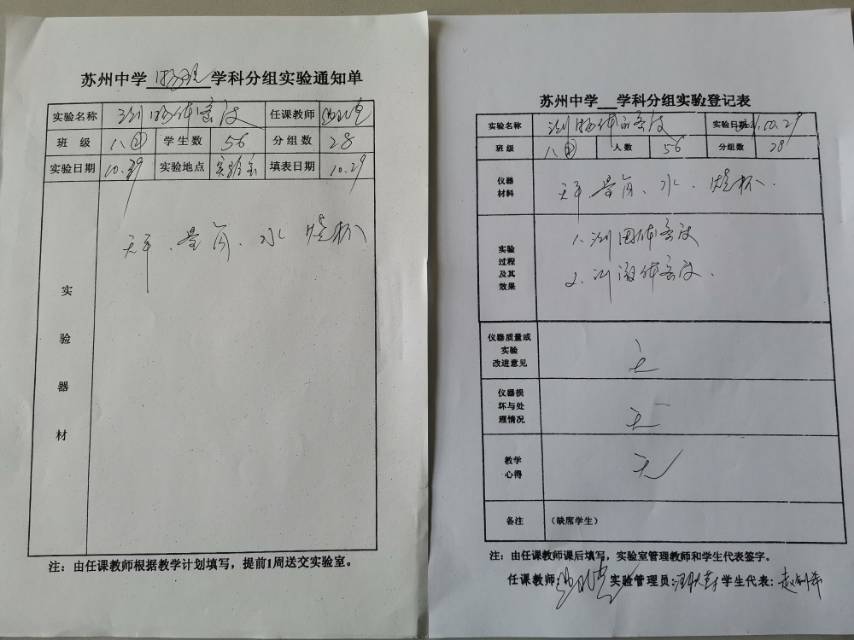 苏州中学 物理 学科分组实验通知单
实验名称 测物体密度 任课教师
班级 八④ 学生数 56 分组数 28
实验日期 10.29 实验地点 实验室 填表日期 10.29
实验器材
天平、量筒、水 烧杯
注：由任课教师根据教学计划填写，提前1周送交实验室。
苏州中学 学科分组实验登记表
实验名称 测物体的密度 实验日期 10.29
班级 八④ 人数 56 分组数 28
仪器材料 天平 量筒、水、烧杯.
实验过程及其效果
1. 测固体密度
2. 测液体密度.
仪器质量或实验改进意见 无
仪器损坏与处理情况 无
教学心得 无
备注 （缺席学生）
注：由任课教师课后填写，实验室管理教师和学生代表签字。
任课教师: 实验管理员: 学生代表: